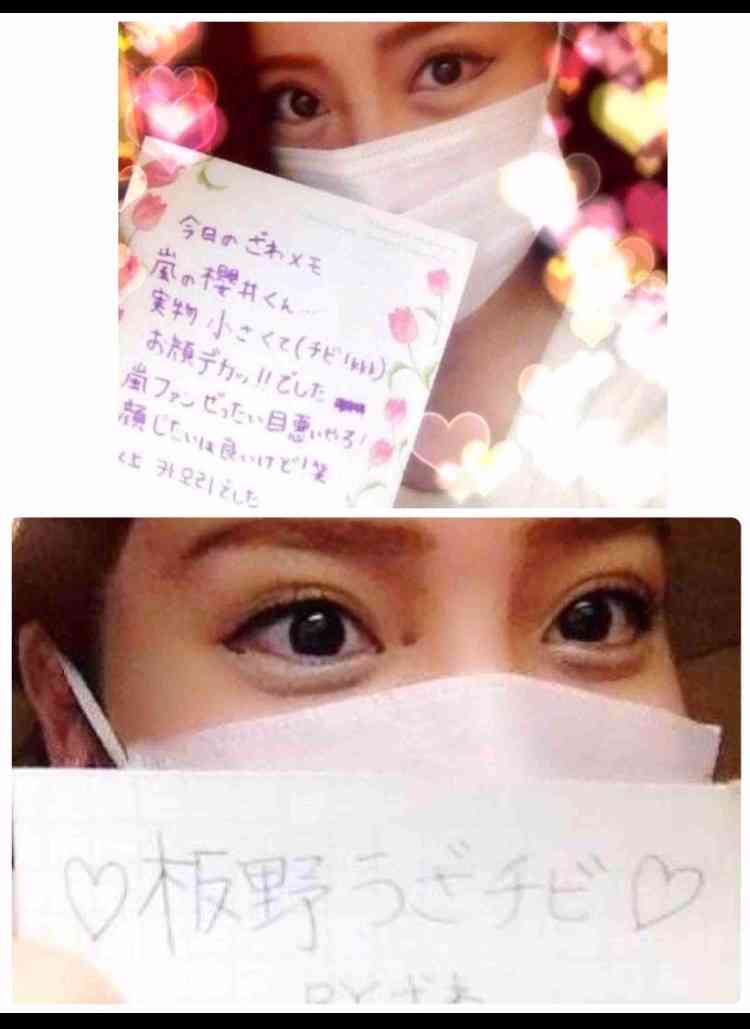 今日のざわメモ
嵐の櫻井くん…
実物 小さくて(チビ!kkk)
お顔デカッ!!でした
嵐ファンぜったい目悪いやろ!
顔じたいは良いけど!笑
でした
♡板野うざチビ♡
BYざわ